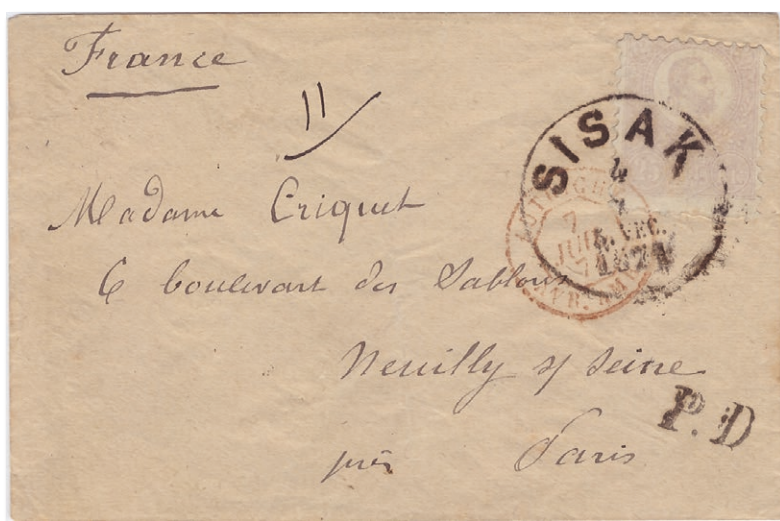 France
11
SISAK
Madame Criquet
6 boulevart des Sablons
Neuilly s/ Seine
P.D
près Paris